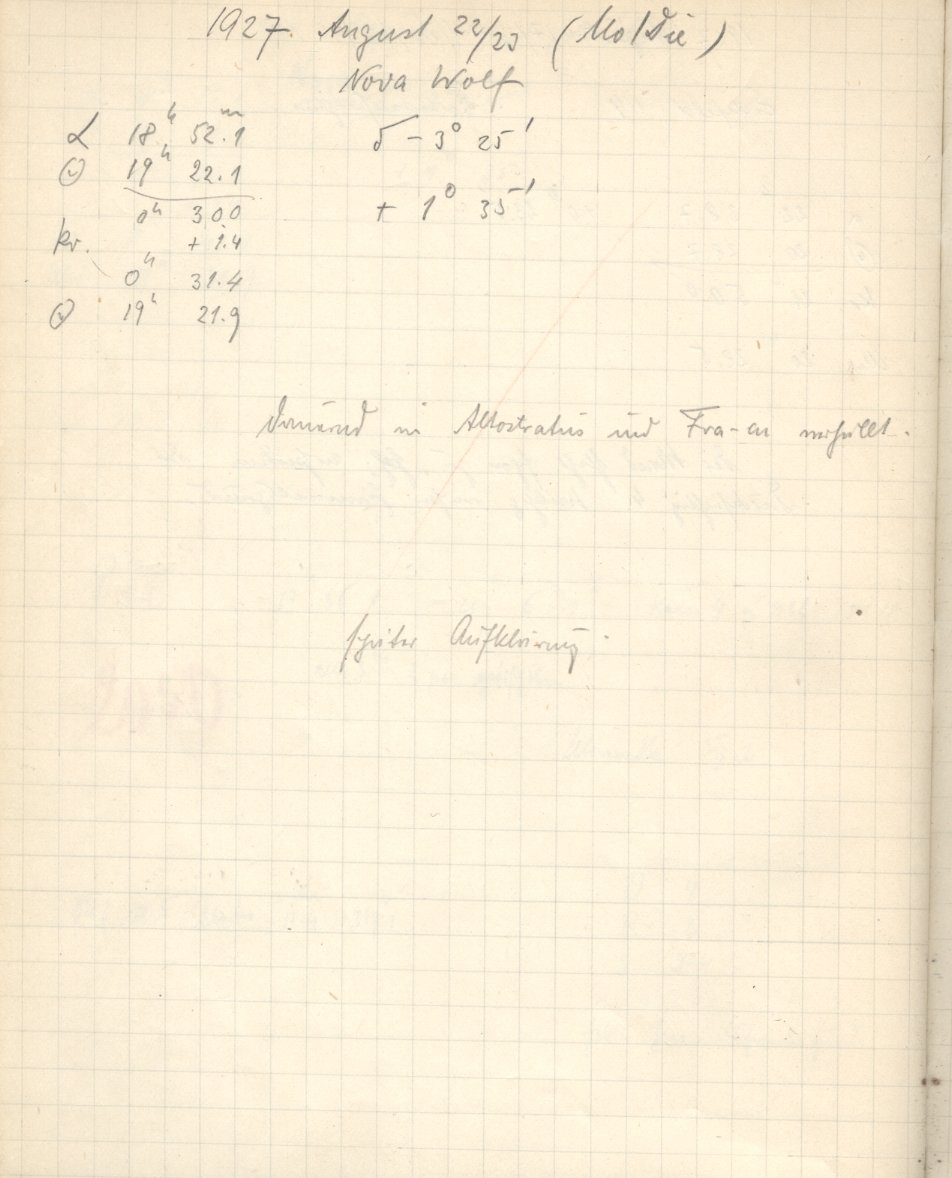 1927. August 22/23 (Mo/Die)
Nova Wolf
α 18h 52.1m δ - 3° 25'
19h 22.1
0h 30.0 + 1° 35'
kr. + 1.4
0h 31.4
19h 21.9
dauernd in Altostratus und Fra-cu verhüllt.
später Aufklärung.